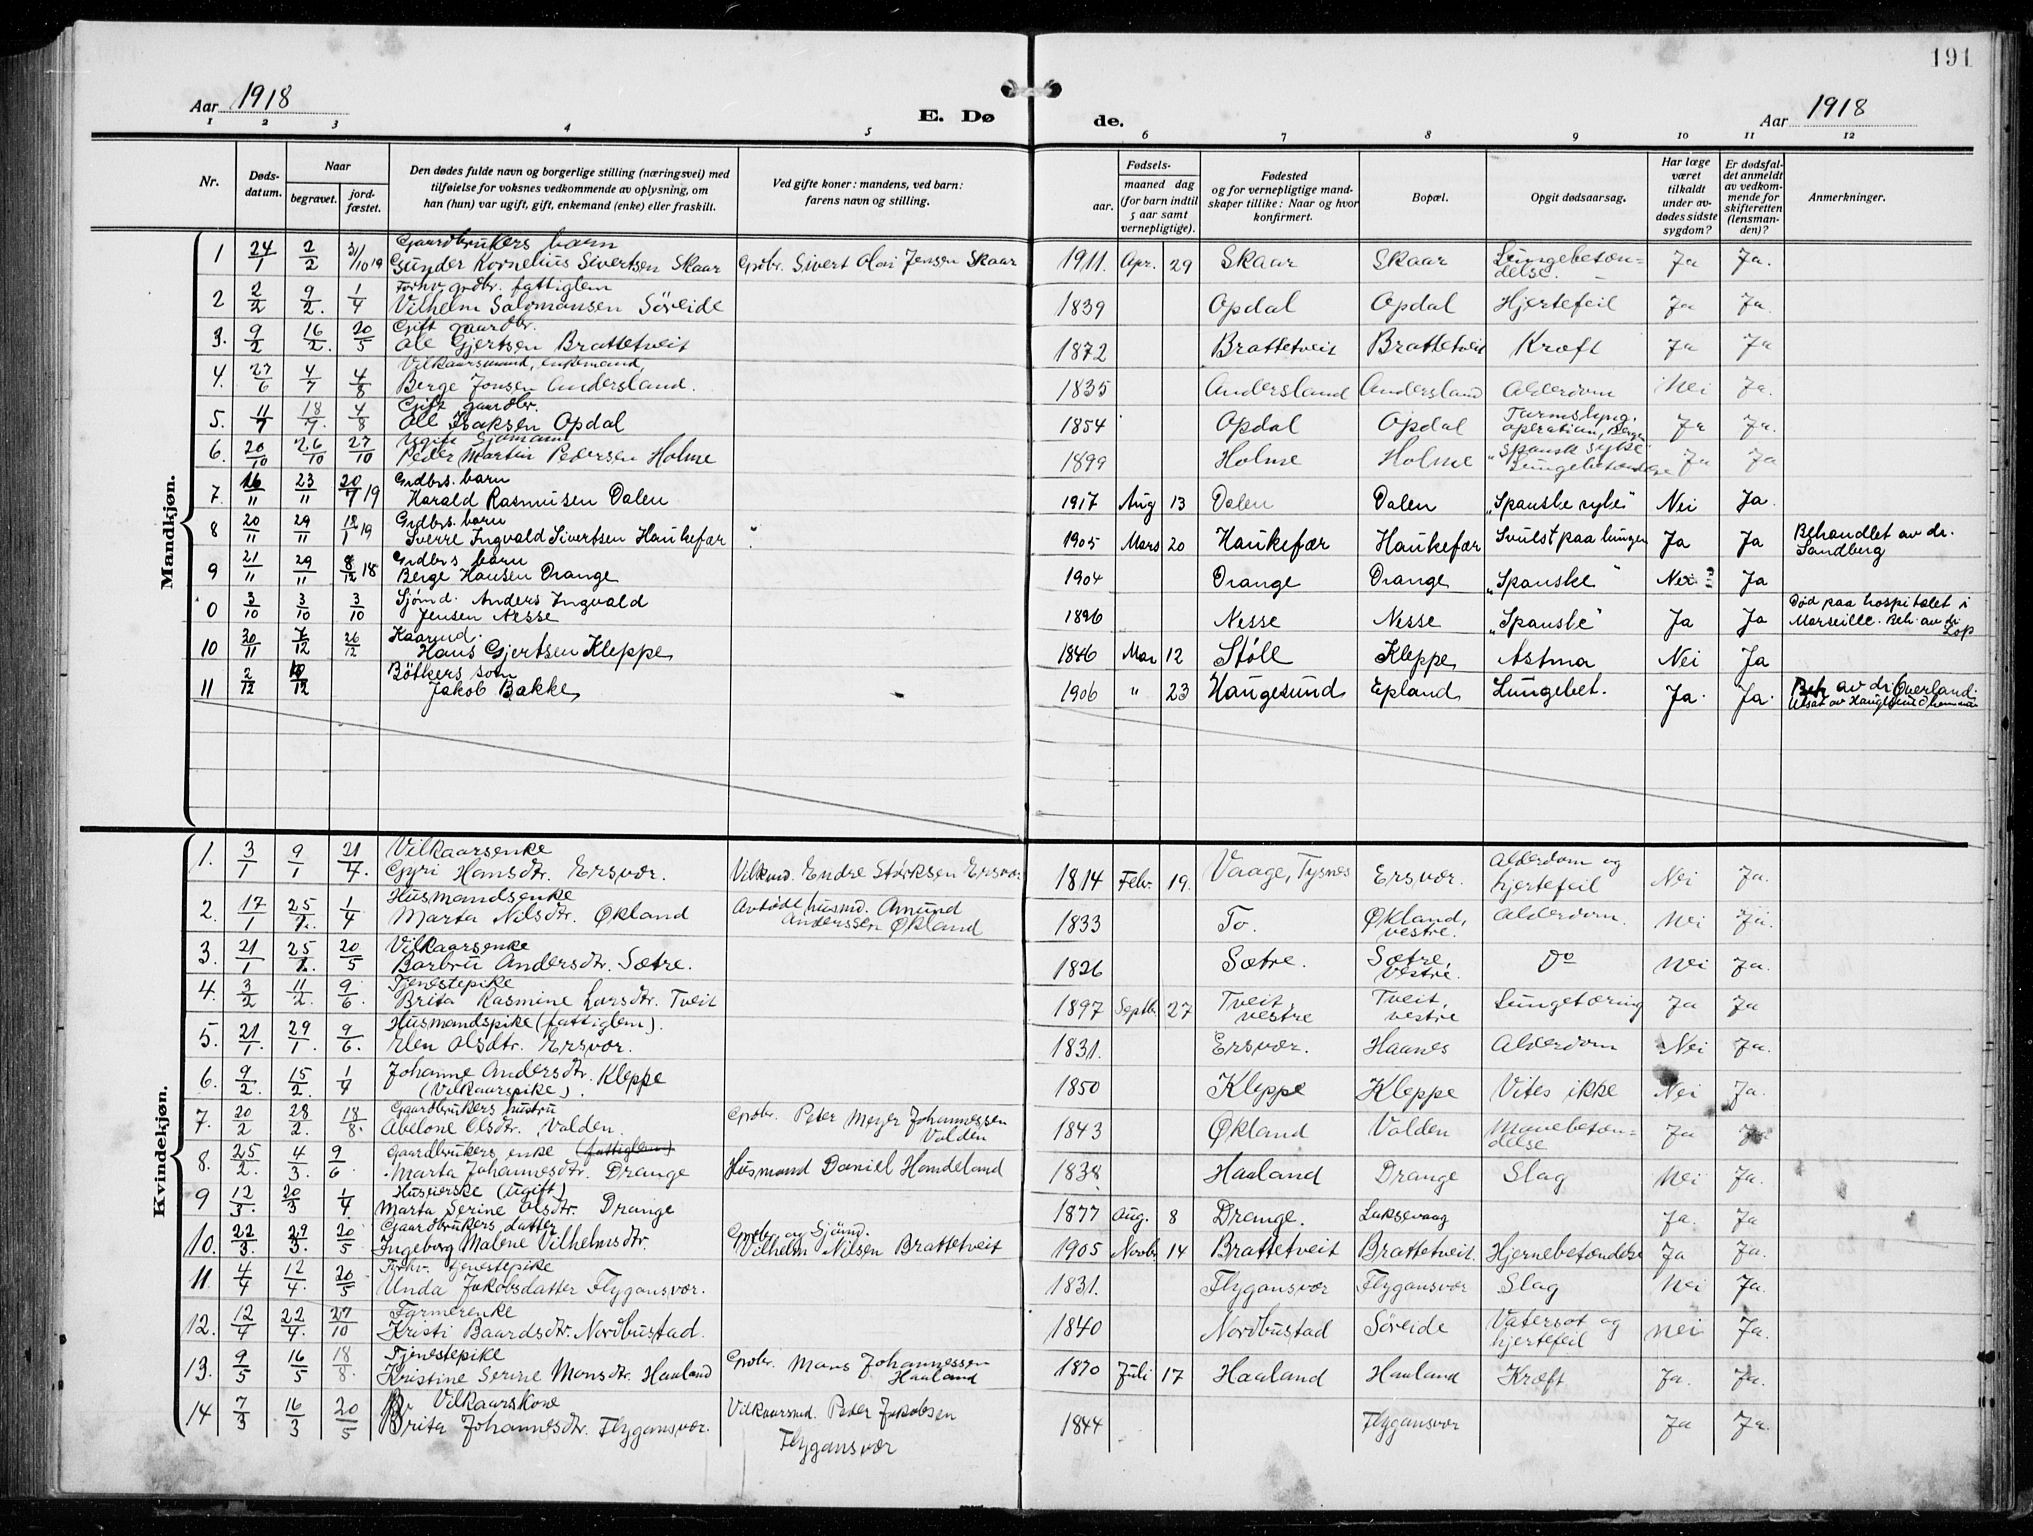 191
Aar 1918
E. Dø de.
Aar 1918
1 2 3 4 5 6 7 8 9 10 11 12
Nr.
Døds-datum.
Naar
begravet.
jord-fæstet.
Den dødes fulde navn og borgerlige stilling (næringsvei) med
tilføielse for voksnes vedkommende av oplysning, om
han (hun) var ugift, gift, enkemand (enke) eller fraskilt.
Ved gifte koner: mandens, ved barn:
farens navn og stilling.
Fødsels-
aar.
maaned dag
(for barn indtil
5 aar samt
vernepligtige).
Fødested
og for vernepligtige mand-
skaper tillike: Naar og hvor
konfirmert.
Bopæl.
Opgit dødsaarsag.
Har læge
været
tilkaldt
under av-
dødes sidste
sygdom?
Er dødsfal-
det anmeldt
av vedkom-
mende for
skifteretten
(lensman-
den)?
Anmerkninger.
Mandkjøn.
1 24/1 2/2 31/10 19 Gaardbrukers barn
Gunder Kornelius Sivertsen Skaar Grdbr. Sivert Olai Jensen Skaar 1911. Apr. 29 Skaar Skaar Lungebeton=
delse. Ja Ja.
2 2/2 9/2. 1/4 Forhv. grdbr. fattiglem
Vilhelm Salomonsen Söreide 1839 Opdal Opdal Hjertefeil Ja Ja.
3. 9/2 16/2. 20/5 Gift gaardbr.
Ole Gjertsen Brattetveit 1872 Brattetveit Brattetveit Kræft Ja Ja
4. 27/6 4/7 4/8 Vilkaarsmand, enkemand,
Berge Jonsen Andersland. 1835 Andersland Andersland Alderdom Nei Ja.
5. 11/7 18/7. 4/8 Gift gaardbr.
Ole Isaksen Opdal 1854 Opdal Opdal Tarmslyng.
operation, Bergen Ja Ja.
6. 20/10 26/10 27/10 Ugift Sjömand
Peder Martin Pedersen Holme 1899 Holme Holme "Spansk syke"
Lungebetændelse Ja Ja
7. 16/11 23/11 20/7 19 Grdbrs. barn
Harald Rasmussen Dalen 1917 Aug 13 Dalen Dalen "Spanske syke" Nei Ja.
8 20/11 29/11 12/1 19 Grdbrs. barn
Sverre Ingvald Sivertsen Haukefær " 1905 Mars 20 Haukefær Haukefær Svulst paa lungen Ja Ja Behandlet av dr.
Sandberg
9 21/11 29/11 8/12 18 Grdbrs barn
Berge Hansen Drange 1904 Drange Drange "Spanske" Nei? Ja
0 3/10 3/10 3/10 Sjømd. Anders Ingvald
Jensen Nesse 1896 Nesse Nesse "Spanske" Ja Ja Død paa hospitalet i
Marseille. Beh. av dr
10 30/11 7/12 26/12 Kaarmd.
Hans Gjertsen Kleppe 1846 Mar 12 Støle Kleppe Astma Nei Ja
11 2/12 10/12 Bötkers søn
Jakob Bakke 1906 " 23 Haugesund Epland Lungebet. Ja. Ja. Beh av dr. Overland.
Utsat av Haugesund
Kvindekjøn.
1. 3/1 9/1 21/4. Vilkaarsenke
Gyri Hansdtr. Ersvær. Vilkmd. Endre Störksen Ersvær 1814 Febr. 19. Vaage, Tysnes Ersvær. Alderdom og
hjertefeil Nei Ja.
2. 17/1 25/2. 1/4 Husmandsenke
Marta Nilsdtr. Økland Avdöde husmd. Amund
Anderssen Økland 1833 To. Økland,
vestre. Alderdom. Nei Ja.
3. 21/1 25/2. 20/5 Vilkaarsenke
Barbru Andersdtr. Sætre. 1826 Sætre. Sætre,
vestre. Do Nei Ja.
4. 3/2 11/2. 9/6. Tjenestepike
Brita Rasmine Larsdtr. Tveit 1897 Septb. 27 Tveit,
vestre Tveit,
vestre Lungetæring Ja Ja
5. 21/1. 29/1. 9/6. Husmandspike (fattiglem).
Elen Olsdtr. Ersvær. 1831. Ersvær. Haanes Alderdom Nei Ja.
6. 9/2. 15/2. 1/4 Johanne Andersdtr. Kleppe
(Vilkaarspike). 1850 Kleppe Kleppe Vites ikke Nei Ja.
7. 20/2 28/2. 18/8. Gaardbrukers hustru
Abelone Olsdtr. Valden. Grdbr. Peter Meyer Johannessen
Valden 1843 Økland Valden Mavebeton=
delse Ja Ja
8. 25/2. 4/3. 9/6. Gaardbrukers enke (fattiglem)
Marta Johannesdtr. Drange Husmand Daniel Handeland 1838. Haaland Drange Slag Nei Ja.
9 12/3. 20/3 1/4 Huseierske (ugift)
Marta Serine Olsdtr. Drange 1877 Aug. 8 Drange. Laksevaag Ja. Ja
10. 22/3. 29/3. 20/5 Gaardbrukers datter
Ingeborg Malene Vilhelmsdtr. Grdbr. og Sjömd.
Vilhelm Nilsen Brattetveit 1905 Novb. 14 Brattetveit Brattetveit. Hjernebetændelse Ja Ja.
11 4/4 12/4. 20/5 Forhv. tjenestepike
Unda Jakobsdatter Flygansvær. 1831. Flygansvær Flygansvær Slag Nei Ja.
12. 12/4 22/4. 27/10 Farmerenke
Kristi Baardsdtr. Nordbustad. 1840 Nordbustad Søreide Vatersot og
hjertefeil Nei Ja.
13. 9/5 16/5 18/8. Tjenestepike
Kristine Serine Monsdtr. Haaland Grdbr. Mons Johannessen
Haaland 1870 Juli 17 Haaland Haaland Kræft Ja. Ja.
14 7/3 16/3 20/5 Vilkaarskone
Brita Johannesdtr. Flygansvær. Vilkaarsmd. Peder Jakobsen
Flygansvær 1844 Flygansvær Ja Ja.